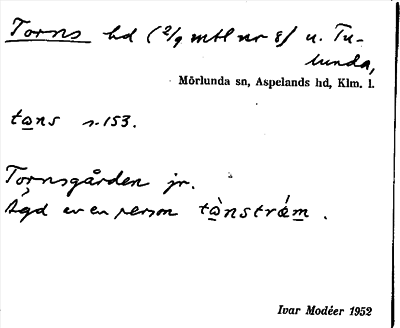 Torns hd (2/9 mtl nr 8) u. Tu-
lunda,
Mörlunda sn, Aspelands hd, Klm. l.
tɷns s. 153.
Tornsgården jr.
Ägd av en person tɷ̀nstrǽm.
Ivar Modéer 1952